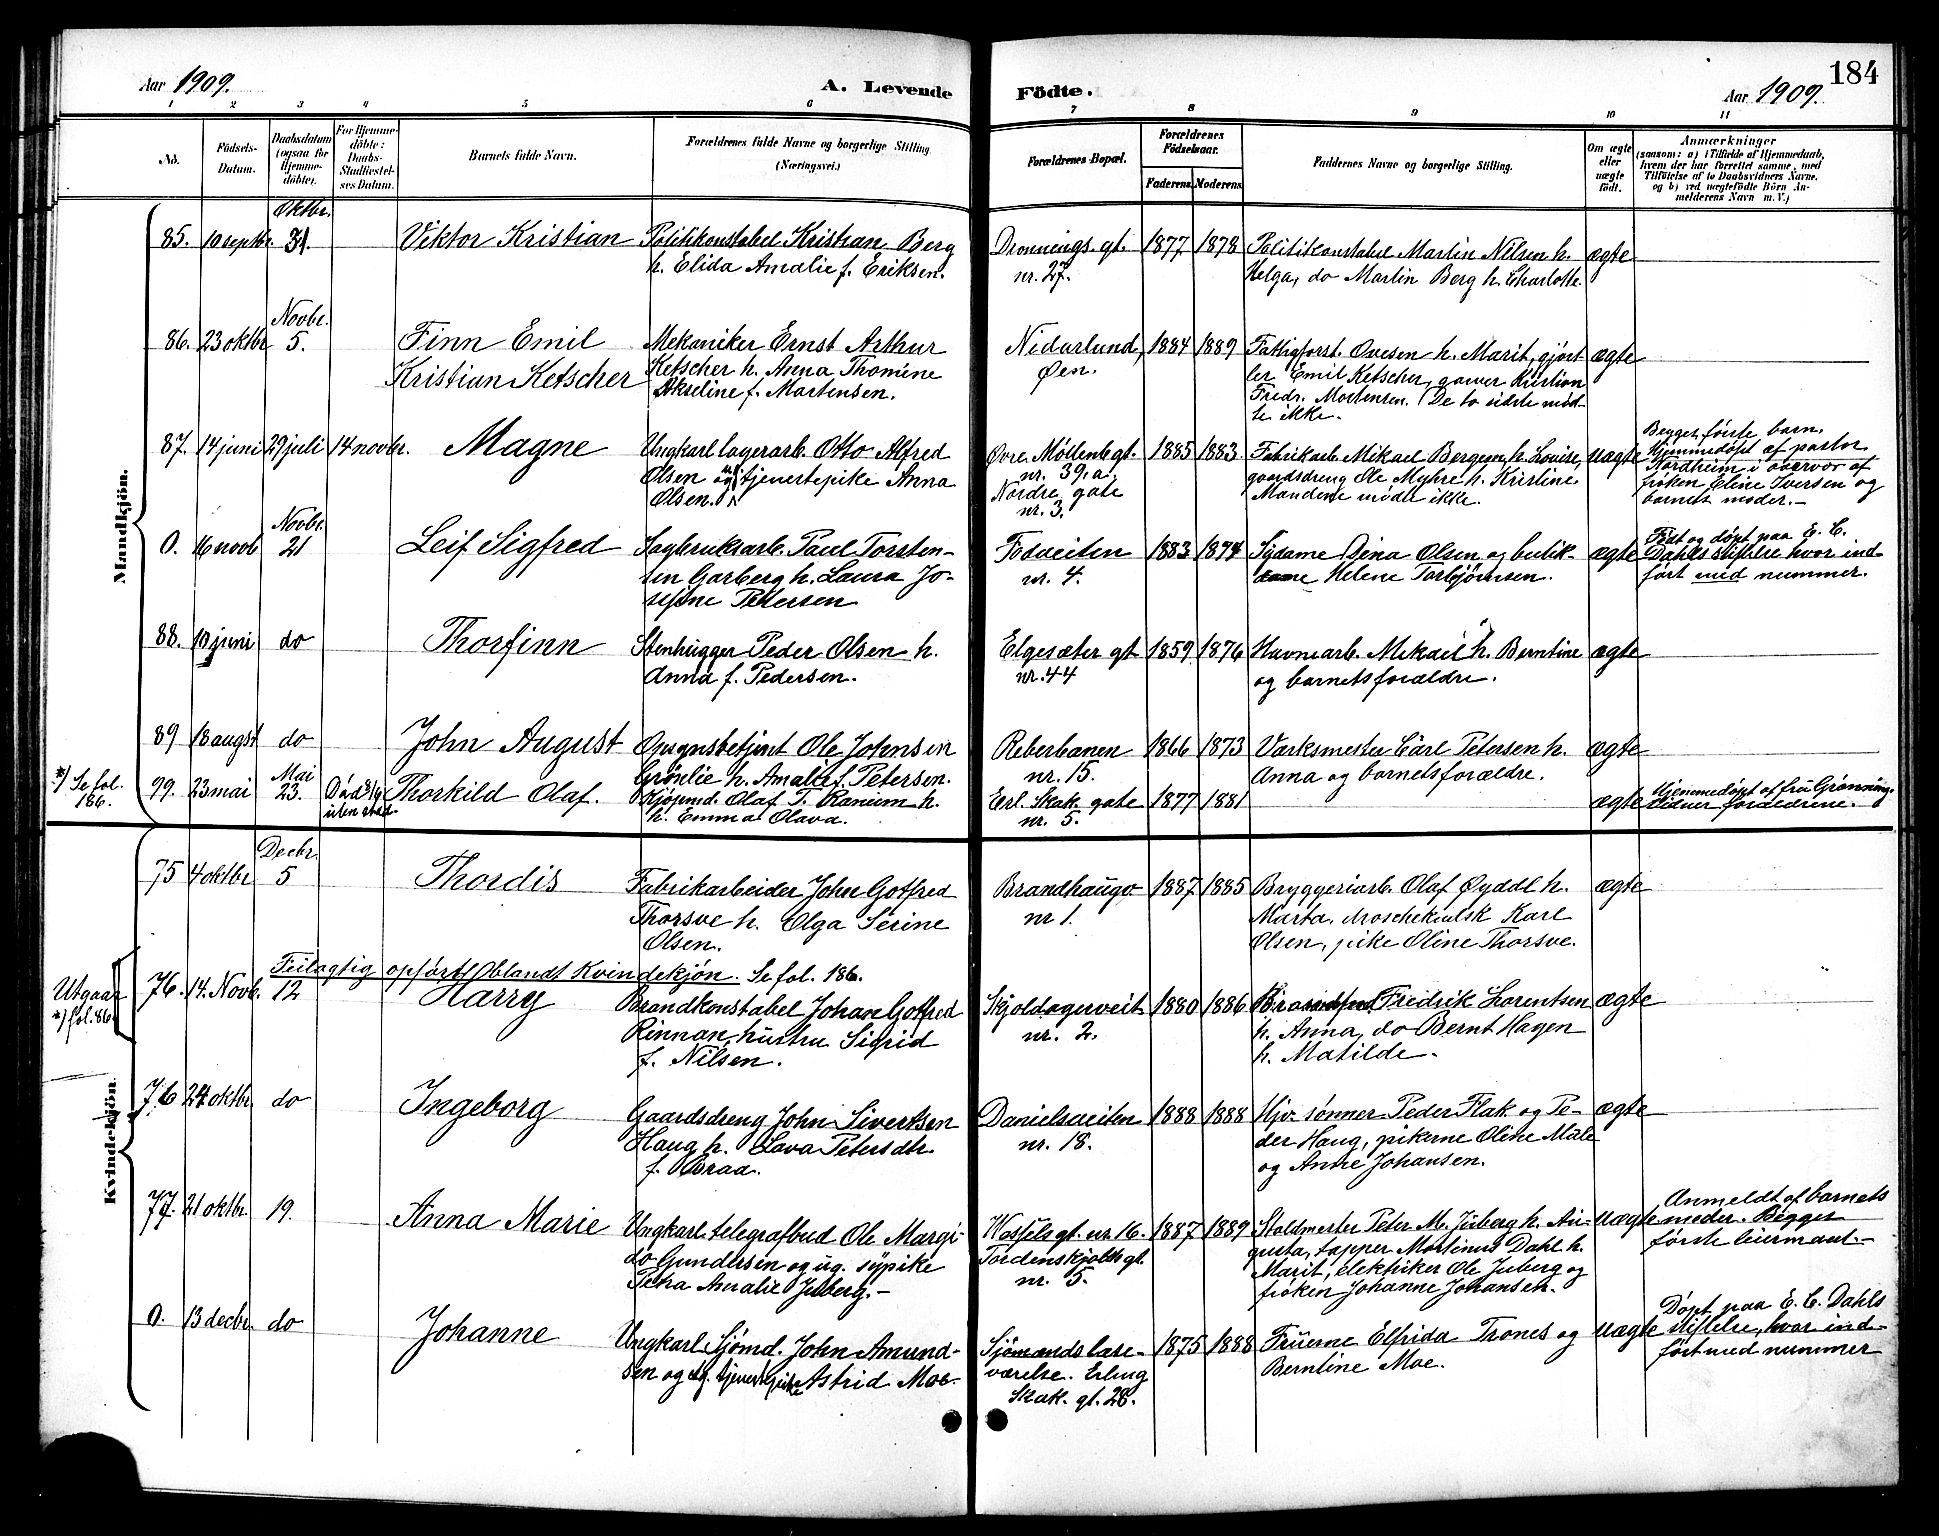 184
Aar 1909.
A. Levende
Födte.
Aar 1909.
1 2 3 4 5 6 7 8 9 10 11
No.
Födsels-Datum.
Daabsdatum (ogsaa for Hjemmedöbte).
For Hjemmedöbte: Daabs-Stadfæstelses Datum.
Barnets fulde Navn.
Forældrenes fulde Navne og borgerlige Stilling (Næringsvei.)
Forældrenes Bopæl.
Forældrenes Födselsaar.
Faderens. Moderens.
Faddernes Navne og borgerlige Stilling.
Om ægte eller uægte födt.
Anmærkninger
(saasom: a) i Tilfælde af Hjemmedaab,
hvem der har forrettet samme, med
Tilföielse af to Daabsvidners Navne,
og b) ved uægtefödte Börn An-
melderens Navn m.V.)
Mandkjön.
85. 10 septbr. Oktbr. 31. Viktor Kristian
Politikonstabel Kristian Berg
h. Elida Amalie f. Eriksen.
Dronnings. gt.
nr. 27.
1877 1878
Politikonstabel Martin Nilsen h.
Helga, do Martin Berg h. Charlotte.
ægte
86. 23 oktbr Novbr. 5. Finn Emil
Kristian Ketscher
Mekaniker Ernst Arthur
Ketscher h. Anna Thomine
Akseline f. Martensen.
Nidarlund,
Øen.
1884 1889
Fattigforst. Ovesen h. Marit, gjört
ler Emil Ketscher, garver Kristian
Fredr. Mortensen. De to sidste mød-
te ikke.
ægte
87. 14 juni 29 juli 14 novbr. Magne
Ungkarl lagerarb. Otto Alfred
Olsen og ug. tjenestepike Anna
Olsen.
Øvre Møllenb. gt.
nr. 39. a
Nordre gate
nr. 3.
1885 1883
Fabrikarb. Mikael Bergem h. Lovise,
gaardsdreng Ole Myhre h. Kristine.
Mændene mødte ikke.
uægte
Begges første barn.
Hjemmedøpt af pastor
Nordheim i overvær af
frøken Eline Iversen og
barnets moder.-
0. 16 novb Novbr. 21 Leif Sigfred
Sagbruksarb. Paul Torsten-
sen Garberg h. Laura Jo-
sefine Petersen
Fodveiten
nr. 4.
1883 1874
Sydame Dina Olsen og butik-
dame Helene Torbjørnsen.
ægte
Født og døpt paa E. C.
Dahls stiftelse hvor ind-
ført med nummer.
88. 10 juni do Thorfinn
Stenhugger Peder Olsen h.
Anna f. Pedersen.
Elgesæter gt
nr. 44
1859 1876
Havnearb. Mikael h. Berntine
og barnets forældre.
ægte
89 18 augst do John August
Opsynsbetjent Ole Johnsen
Grönlie h. Amalie f. Petersen.
Reberbanen
nr. 15.
1866 1873
Værksmester Carl Petersen h.
Anna og barnets forældre.
ægte
*) Se fol.
186.
99. 23 mai Mai 23. Thorkild Olaf.
Kjøpmd. Olaf T. Ranum h.
h. Emma Olava.
Erl. Skak. gate
nr. 5.
1877 1881
ægte
Hjemmedøpt af fru Grønning.
Vidner forældrene.
Kvindekjön.
75 4 oktbr Decbr. 5 Thordis
Fabrikarbeider John Gotfred
Thorsve h. Olga Serine
Olsen.
Brandhaugv
nr 1.
1887 1885
Bryggeriarb. Olaf Øyddl h.
Marta, droschekusk Karl
Olsen, pike Oline Thorsve.
ægte
Feilagtig opført blandt Kvindekjøn. Se fol. 186.
Utgaar
*) fol. 86.
76. 14. Novb. 12 Harry
Brandkonstabel Johan Gotfred
Rinnan, hustru Sigrid
f. Nilsen.
Skjoldagerveit
nr. 2.
1880 1886
Fredrik Lorentsen
h. Anna, do Bernt Hagen
h. Matilde.
ægte
76 24 oktbr. do Ingeborg
Gaardsdreng John Sivertsen
Haug h. Lava Petersdtr.
f. Braa.
Danielsveiten
nr. 18.
1888 1888
Hjv. sønner Peder Flak og Pe-
der Haug, pikerne Oline Mule
og Anne Johansen.
ægte
77. 21 oktbr. 19. Anna Marie
Ungkarl telegrafbud Ole Margi-
do Gundersen og ug. sypike
Petra Amalie Juberg.-
Wessels gt. nr 16.
Tordenskjolds gt.
nr. 5.
1887 1889
Staldmester Peter M. Juberg h. Au-
gusta, tapper Martinus Dahl h.
Marit, elektriker Ole Juberg og
frøken Johanne Johansen.
uægte
Anmeldt af barnets
moder. Begges
første leiermaal.-
0. 13 decbr. do Johanne
Ungkarl Sjömd. John Amund-
sen og ug. tjenestpike Astrid Moe.
Sjömandslæse-
værelse. Erling
Skak. gt. 28.
1875 1888
Fruerne Elfrida Trones og
Berntine Moe.
uægte
Døpt paa E. C. Dahls
stiftelse, hvor ind-
ført med nummer